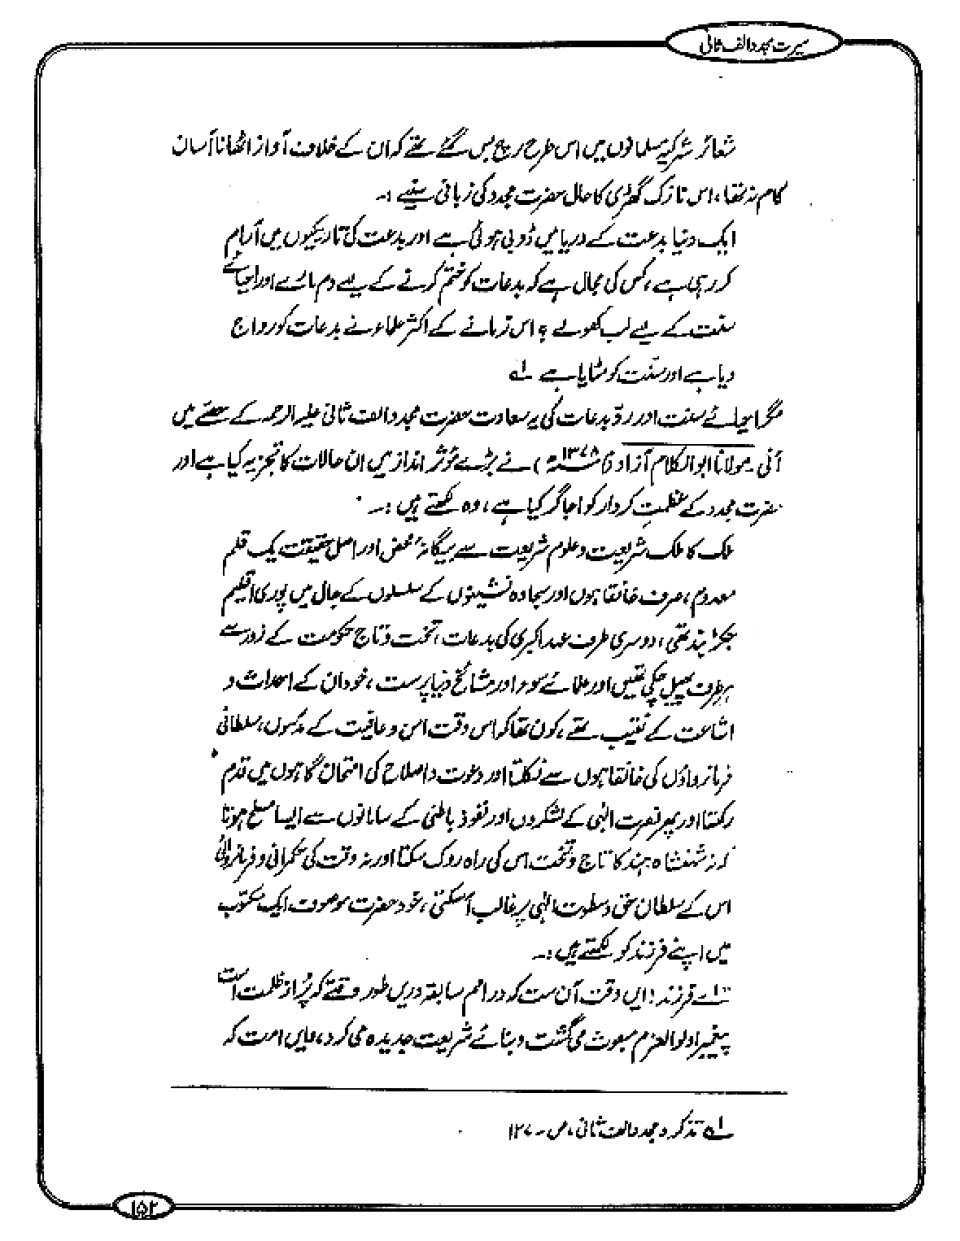 سیرت مجدد الف ثانی
شعائر شرکیہ مسلمانوں میں اس طرح رچ بس گئے تھے کہ ان کے خلاف آواز اٹھانا آسان
کام نہ تھا، اس نازک گھڑی کا حال حضرت مجدد کی زبانی سنیے :۔
ایک دنیا بدعت کے دریا میں ڈوبی ہوئی ہے اور بدعت کی تاریکیوں میں آرام
کر رہی ہے، کس کی مجال ہے کہ بدعات کو ختم کرنے کے لیے دم مارے اور احیائے
سنت کے لیے لب کھولے، اس زمانے کے اکثر علماء نے بدعات کو رواج
دیا ہے اور سنت کو مٹایا ہے ۱؎
مگر احیائے سنت اور ردّ بدعات کی یہ سعادت حضرت مجدد الف ثانی علیہ الرحمہ کے حصے میں
آئی۔ مولانا ابوالکلام آزاد (م ۱۳۷۸ھ) نے بڑے مؤثر انداز میں ان حالات کا تجزیہ کیا ہے اور
حضرت مجدد کے عظمتِ کردار کو اجاگر کیا ہے، وہ لکھتے ہیں :۔
ملک کا ملک شریعت و علوم شریعت سے بیگانۂ محض اور اصل حقیقت یک قلم
معدوم، صرف خانقاہوں اور سجادہ نشینوں کے سلسلوں کے جال میں پوری اقلیم
جکڑ بند تھی، دوسری طرف عہد اکبری کی بدعات، تخت و تاج حکومت کے زور سے
ہر طرف پھیل چکی تھیں اور علمائے سوء اور مشائخ دنیا پرست، خود ان کے احداث و
اشاعت کے نقیب تھے، کون تھا کہ اس وقت امن و عافیت کے مدرسوں، سلطانی
فرمانرواؤں کی خانقاہوں سے نکلتا اور دعوت و اصلاح کی امتحان گاہوں میں قدم
رکھتا اور پھر نصرت الٰہی کے لشکروں اور نفوذ باطنی کے سامانوں سے ایسا مسلح ہوتا
کہ نہ شہنشاہ ہند کا تاج و تخت اس کی راہ روک سکتا اور نہ وقت کی حکمرانی و فرمانروائی
اس کے سلطان حق و سطوت الٰہی پر غالب آسکتی، خود حضرت موصوف ایک مکتوب
میں اپنے فرزند کو لکھتے ہیں :۔
اے فرزند : ایں وقت آن ست کہ در امم سابقہ دریں طور وقتے کہ پُر از ظلمت است
پیغمبر اولوالعزم مبعوث می گشت و بنائے شریعت جدیدہ می کرد، و ایں امت کہ
۱؎ تذکرہ مجدد الف ثانی، ص۔ ۱۲۷
۱۵۲